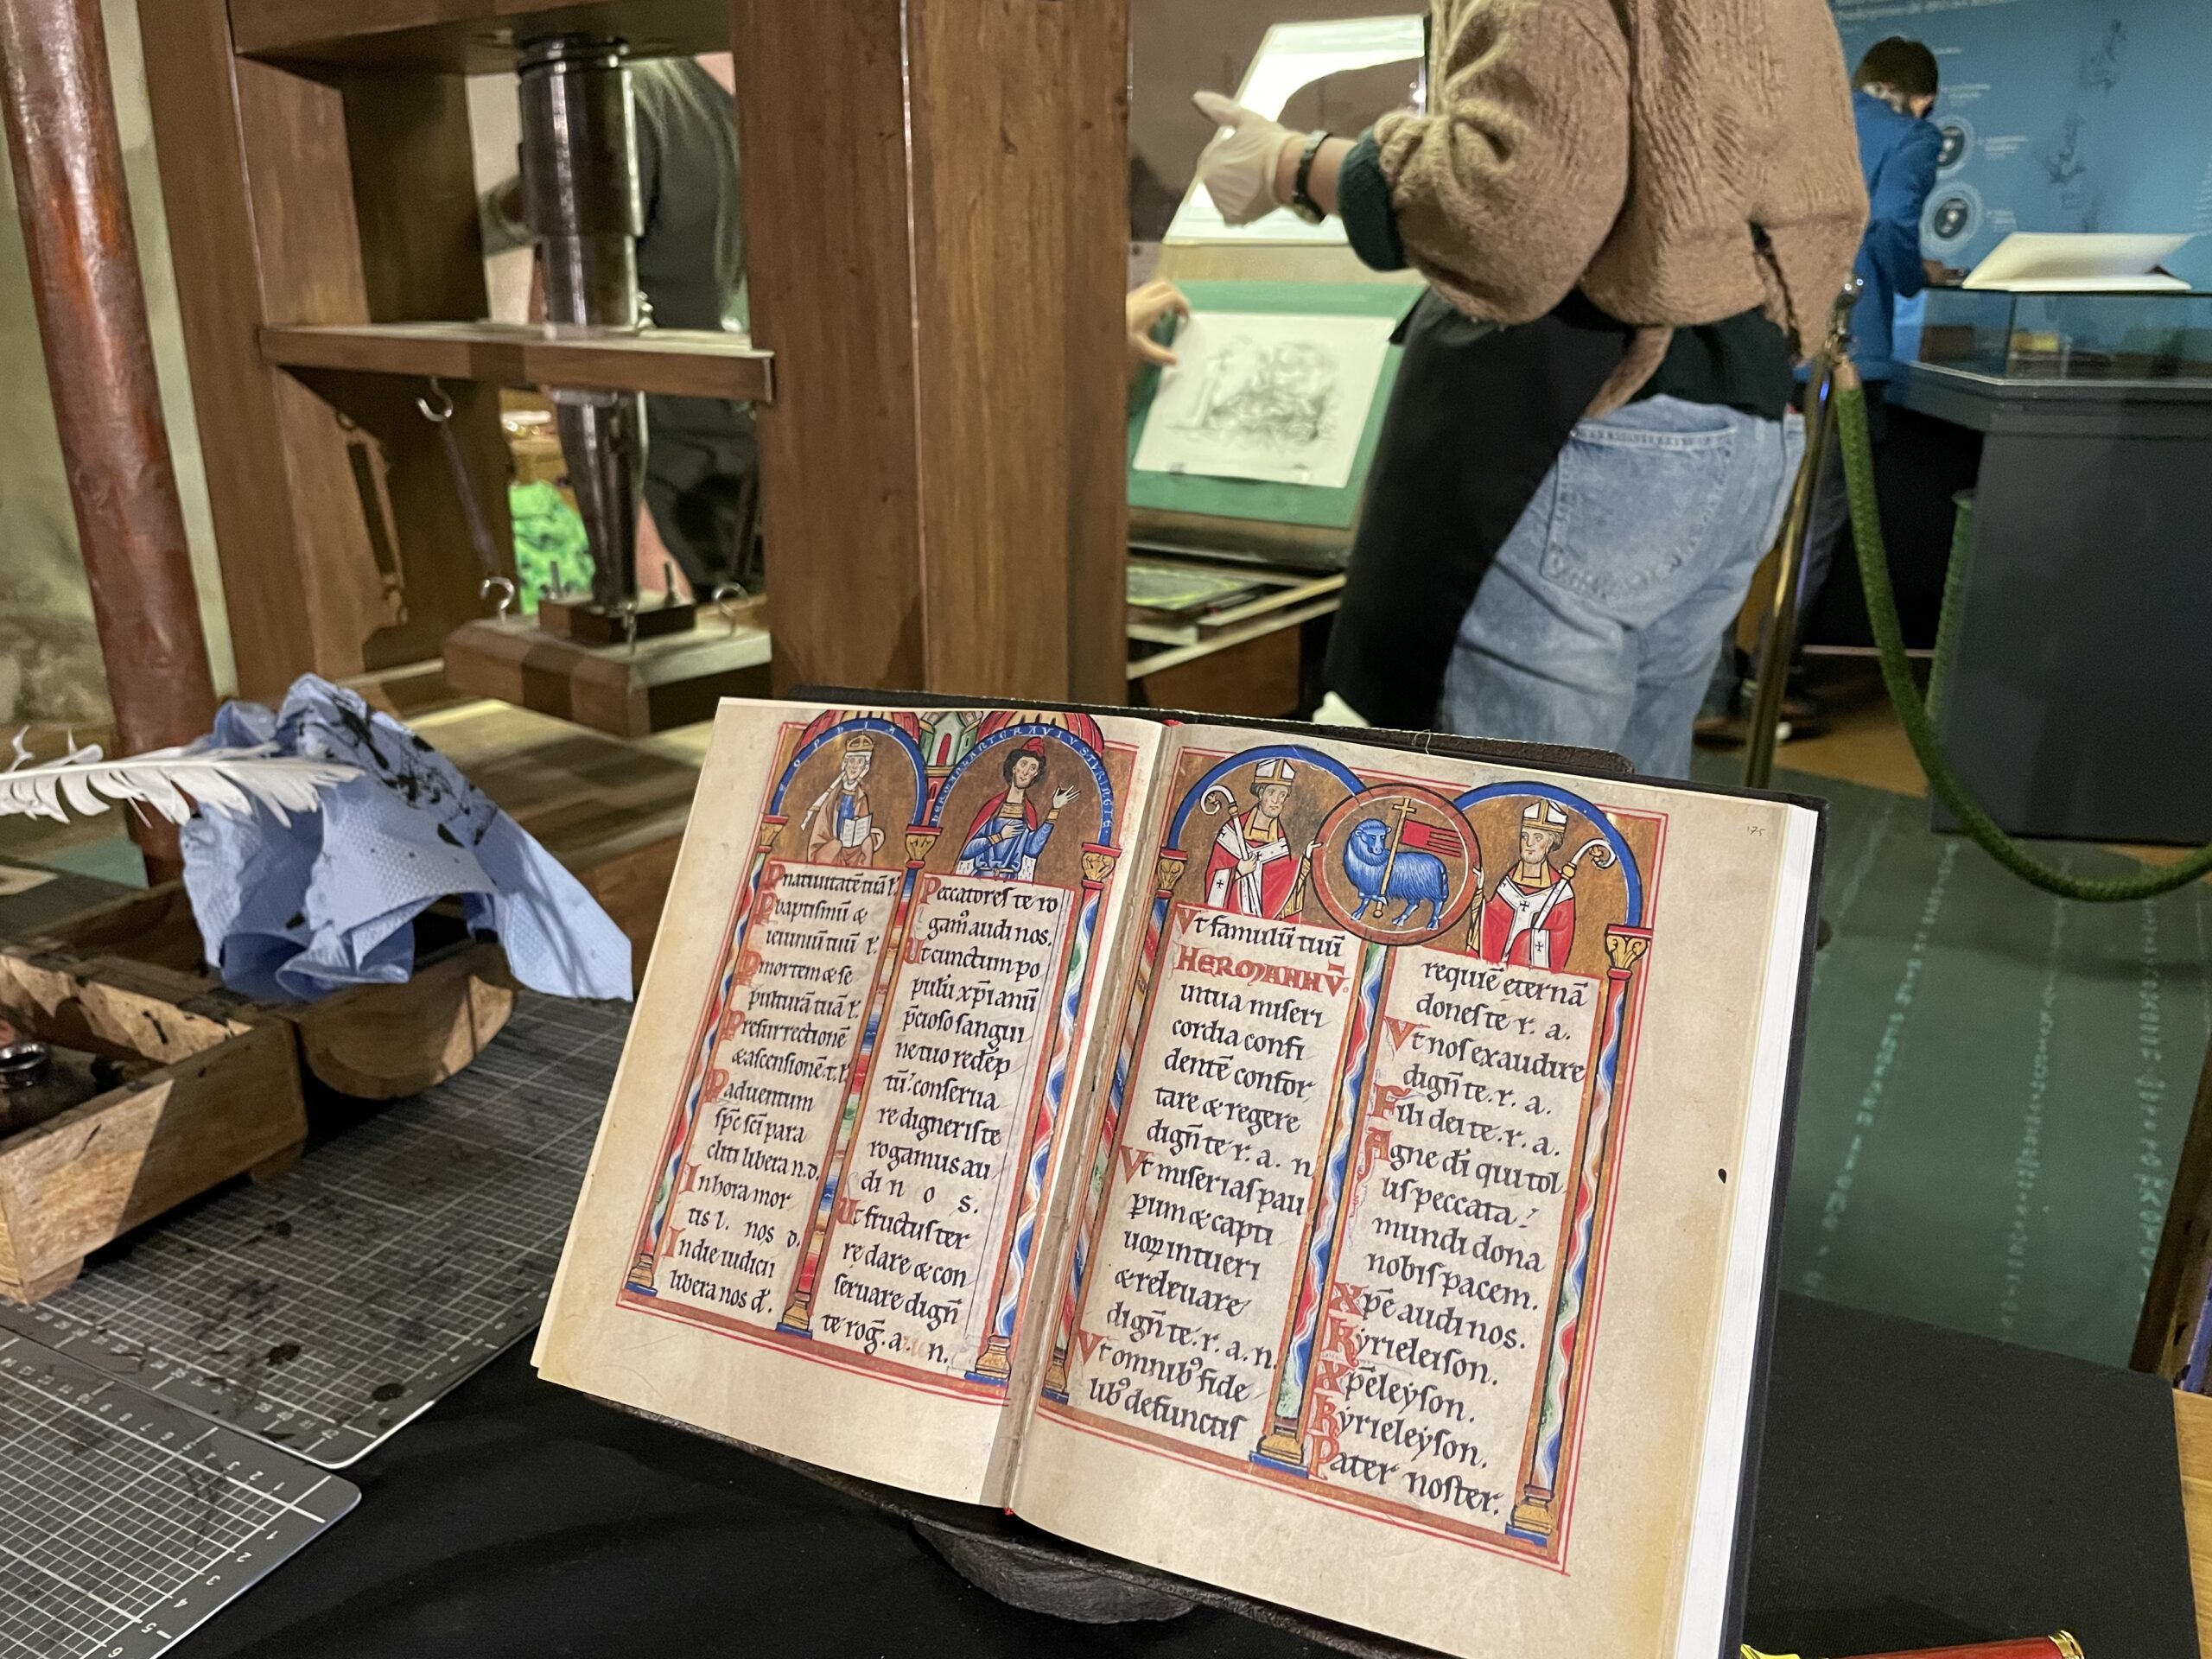 S O P H I A
HERMAN LANTGRAVIVS TVRINGIE
P natiuitatē tuā l'.
P baptismū &
ieiuniū tuū l'.
P mortem & se
pulturā tuā l'.
P resurrectionē
& ascensionē .t. l'.
P aduentum
sp̄c sc̄i para
cliti libera n. d.
In hora mor
tis l. nos d.
In die iudicii
libera nos d'.
Peccatores te ro
gam̄ audi nos.
Ut cunctum po
pulū xp̄ianū
p̄cioso sangui
ne tuo redēp
tū conserua
re digneris te
rogamus au
di n o s.
Ut fructus ter
rę dare & con
seruare dign̄
te rog̅. a. n.
Vt famulū tuū
HERMANNV̄.
in tua miseri
cordia confi
dentē confor
tare & regere
dign̄ te. r. a. n
Vt miserias pau
perum & capti
uoꝝ intueri
& releuare
dign̄ te. r. a. n.
Vt omnibꝰ fide
libꝰ defunctis
requiē ęternā
dones te r. a.
Vt nos exaudire
dign̄ te. r. a.
Fili dei te. r. a.
Agne dī qui tol
lis peccata
mundi dona
nobis pacem.
Xp̄e audi nos.
Kyrieleison.
Xp̄eleyson.
Kyrieleyson.
Pater noster.
175